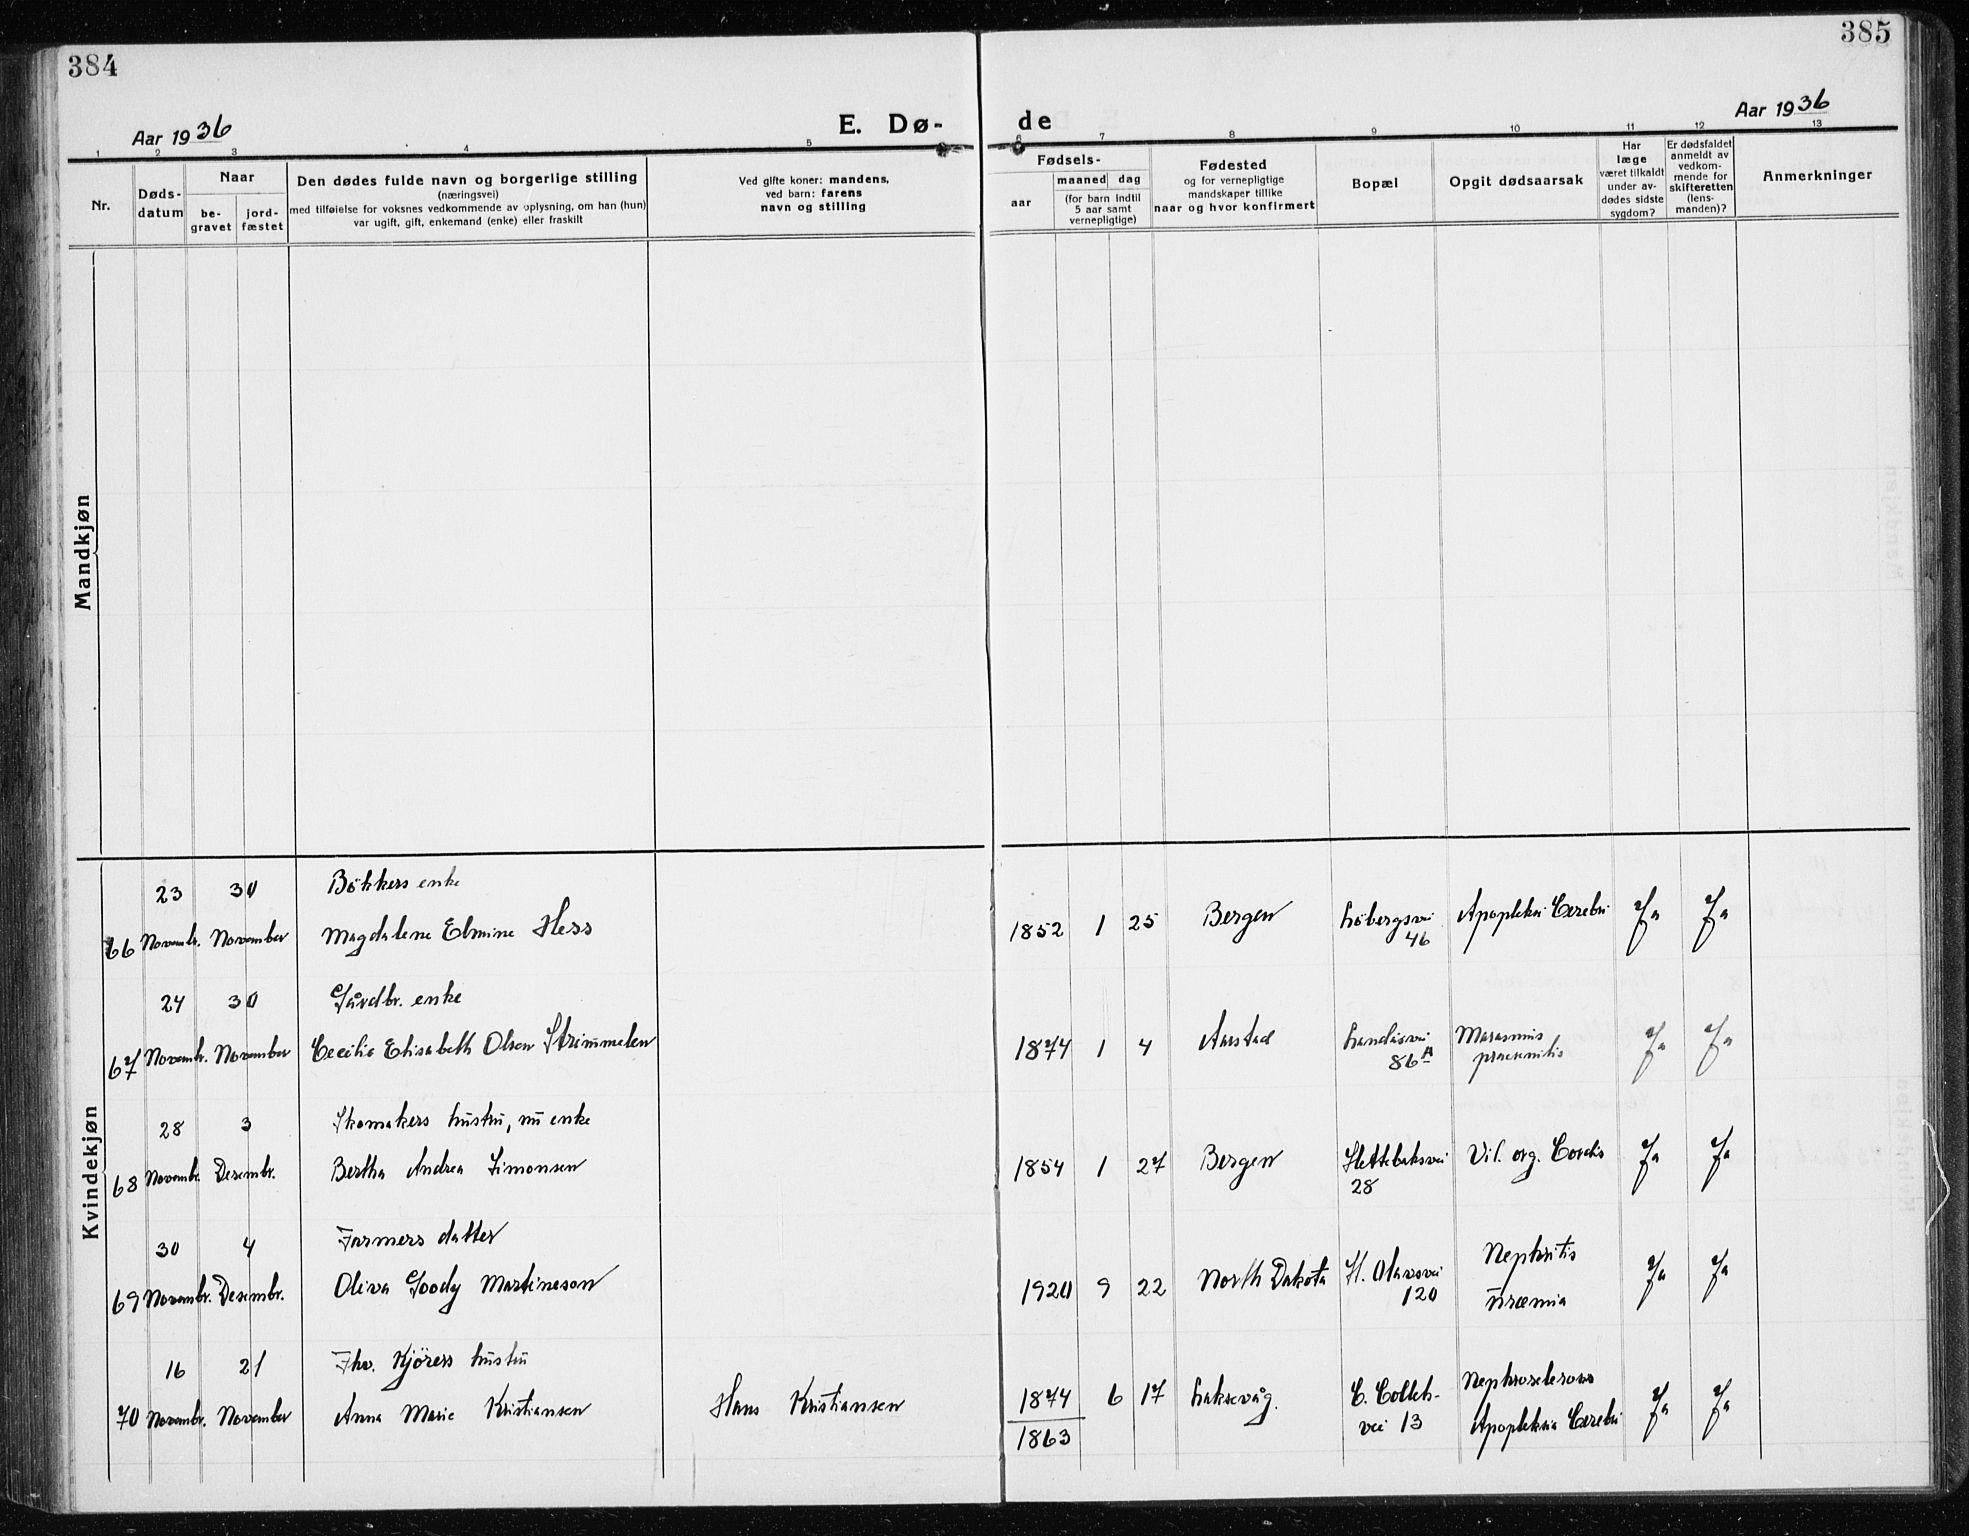 384
385
Aar 1936
E. Dø-
de
Aar 1936
1 2 3 4 5 6 7 8 9 10 11 12 13
Nr.
Døds-
datum
Naar
be-
gravet
jord-
fæstet
Den dødes fulde navn og borgerlige stilling
(næringsvei)
med tilføielse for voksnes vedkommende av oplysning, om han (hun)
var ugift, gift, enkemand (enke) eller fraskilt
Ved gifte koner: mandens,
ved barn: farens
navn og stilling
Fødsels-
aar
maaned dag
(for barn indtil
5 aar samt
vernepligtige)
Fødested
og for vernepligtige
mandskaper tillike
naar og hvor konfirmert
Bopæl
Opgit dødsaarsak
Har
læge
været tilkaldt
under av-
dødes sidste
sygdom?
Er dødsfaldet
anmeldt av
vedkom-
mende for
skifteretten
(lens-
manden)?
Anmerkninger
Mandkjøn
Kvindekjøn
23 30 Bökkers enke
66 Novembr. November Magdalene Elmine Hess 1852 1 25 Bergen 46 Apopleksi Cerebri Ja Ja
24 30 Gårdbr. enke
67 Novembr. November Cecilie Elisabeth Olsen Strimmelen 1874 1 4 Aarstad Landåsvei 86A Marasmus Ja Ja
28 3 Skomakers hustru, nu enke
68 Novembr. Desembr. Bertha Andrea Simonsen 1854 1 27 Bergen Slettebaksvei 28 Vit. org. Cordis Ja Ja
30 4 Farmers datter
69 Novembr. Desembr. Oliva Goody Martineson 1920 9 22 North Dakota St. Olavsvei 120 Nephritis Uræmia Ja Ja
16 21 Fhv. Kjörers hustru
70 Novembr. November Anna Marie Kristiansen Hans Kristiansen 1874 6 17 Laksevåg. C. Colleh-
vei 13 Apopleksia Cerebri Ja Ja
1863